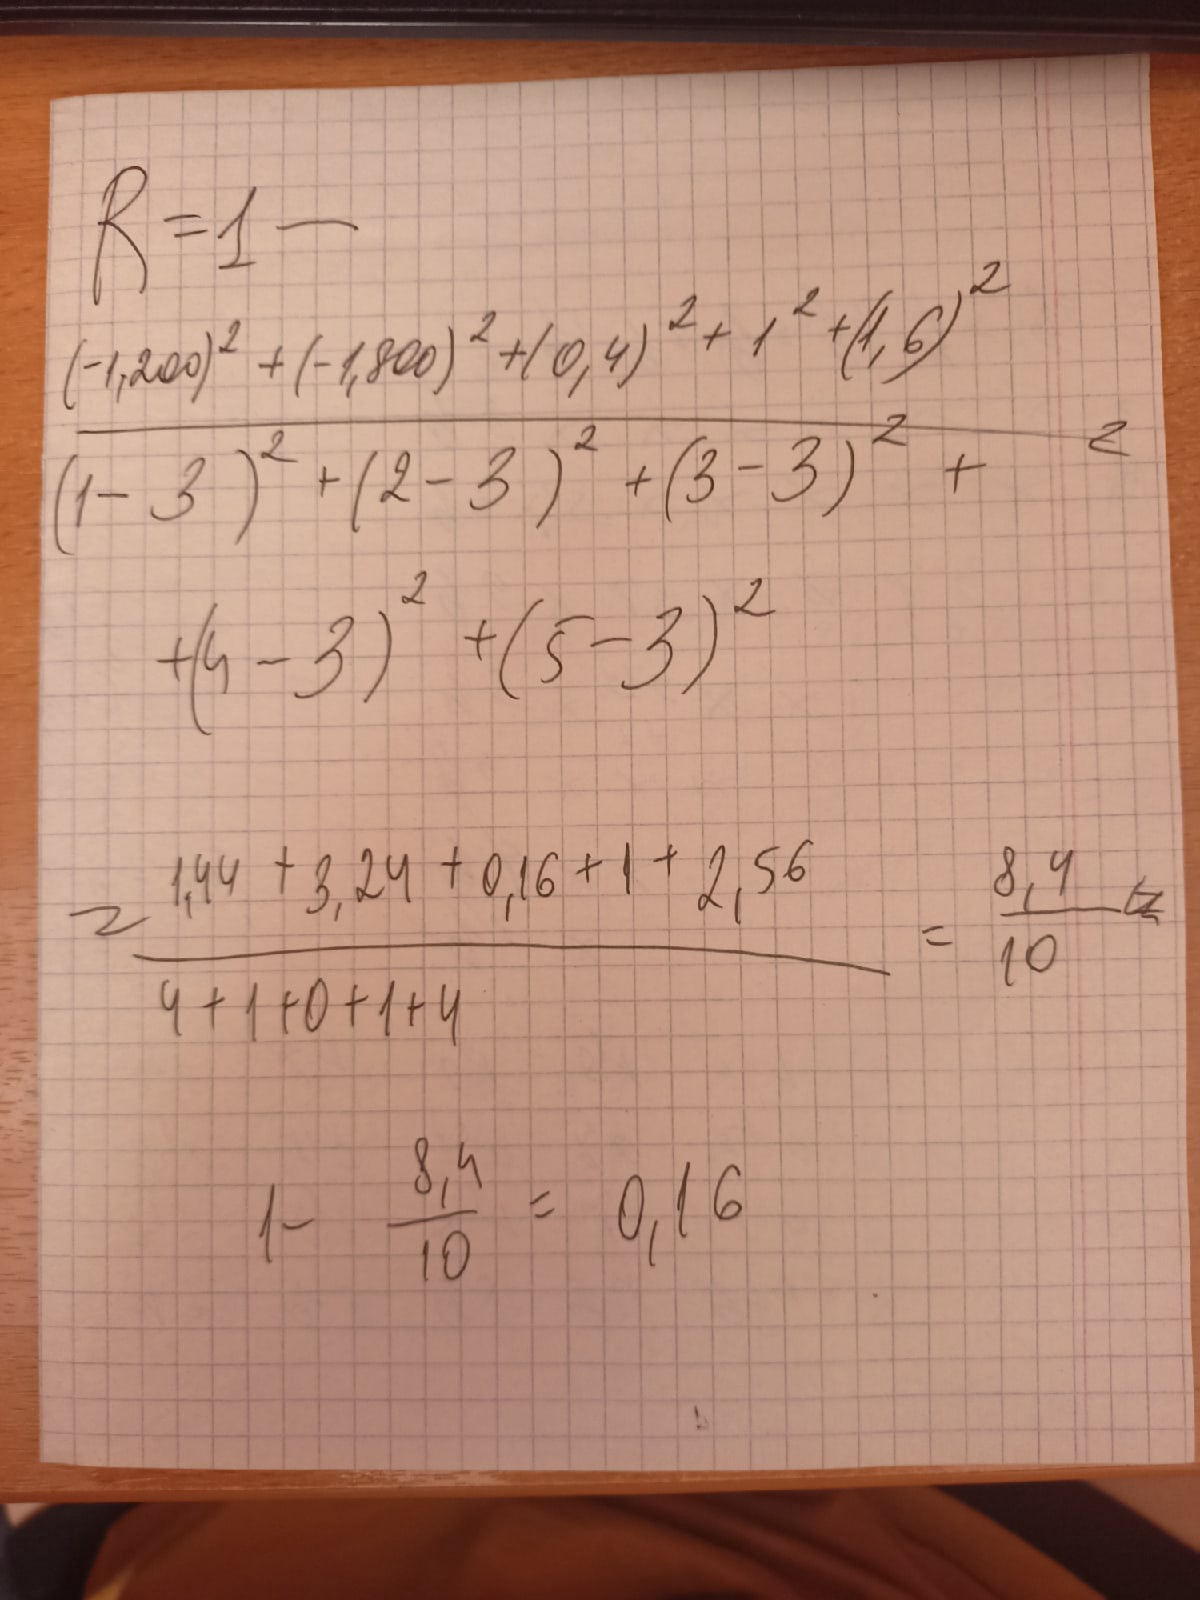 R = 1 —
(-1,200)² + (-1,800)² + (0,4)² + 1² + (1,6)²
(1 - 3)² + (2 - 3)² + (3 - 3)² + =
+(4 - 3)² + (5 - 3)²
= 1,44 + 3,24 + 0,16 + 1 + 2,56 = 8,4
4 + 1 + 0 + 1 + 4 10
1 - 8,4 = 0,16
10